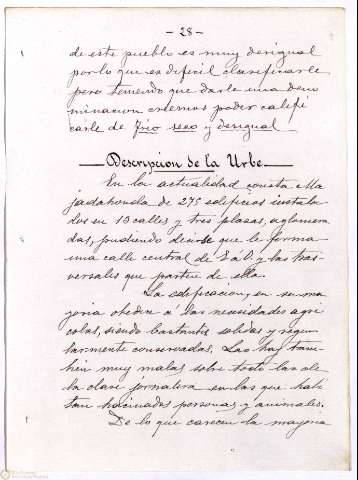 - 28 -
de este pueblo es muy desigual
por lo que es dificil clasificarle
pero teniendo que darle una deno
minacion creemos poder califi
carle de frio seco y desigual
Descripcion de la Urbe
En la actualidad consta Ma
jadahonda de 275 edificios instala
dos en 19 calles y tres plazas, aglomera
das, pudiendo decirse que le forma
una calle central de E a O. y las tras
versales que parten de ella.
La edificacion, en su ma
yoria obedece á las necesidades agri
colas, siendo bastante solidas y regu
larmente conservadas. Las hay tam
bien muy malas sobre todo las de
la clase jornalera en las que habi
tan hacinadas personas y animales.
De lo que carecen la mayoria